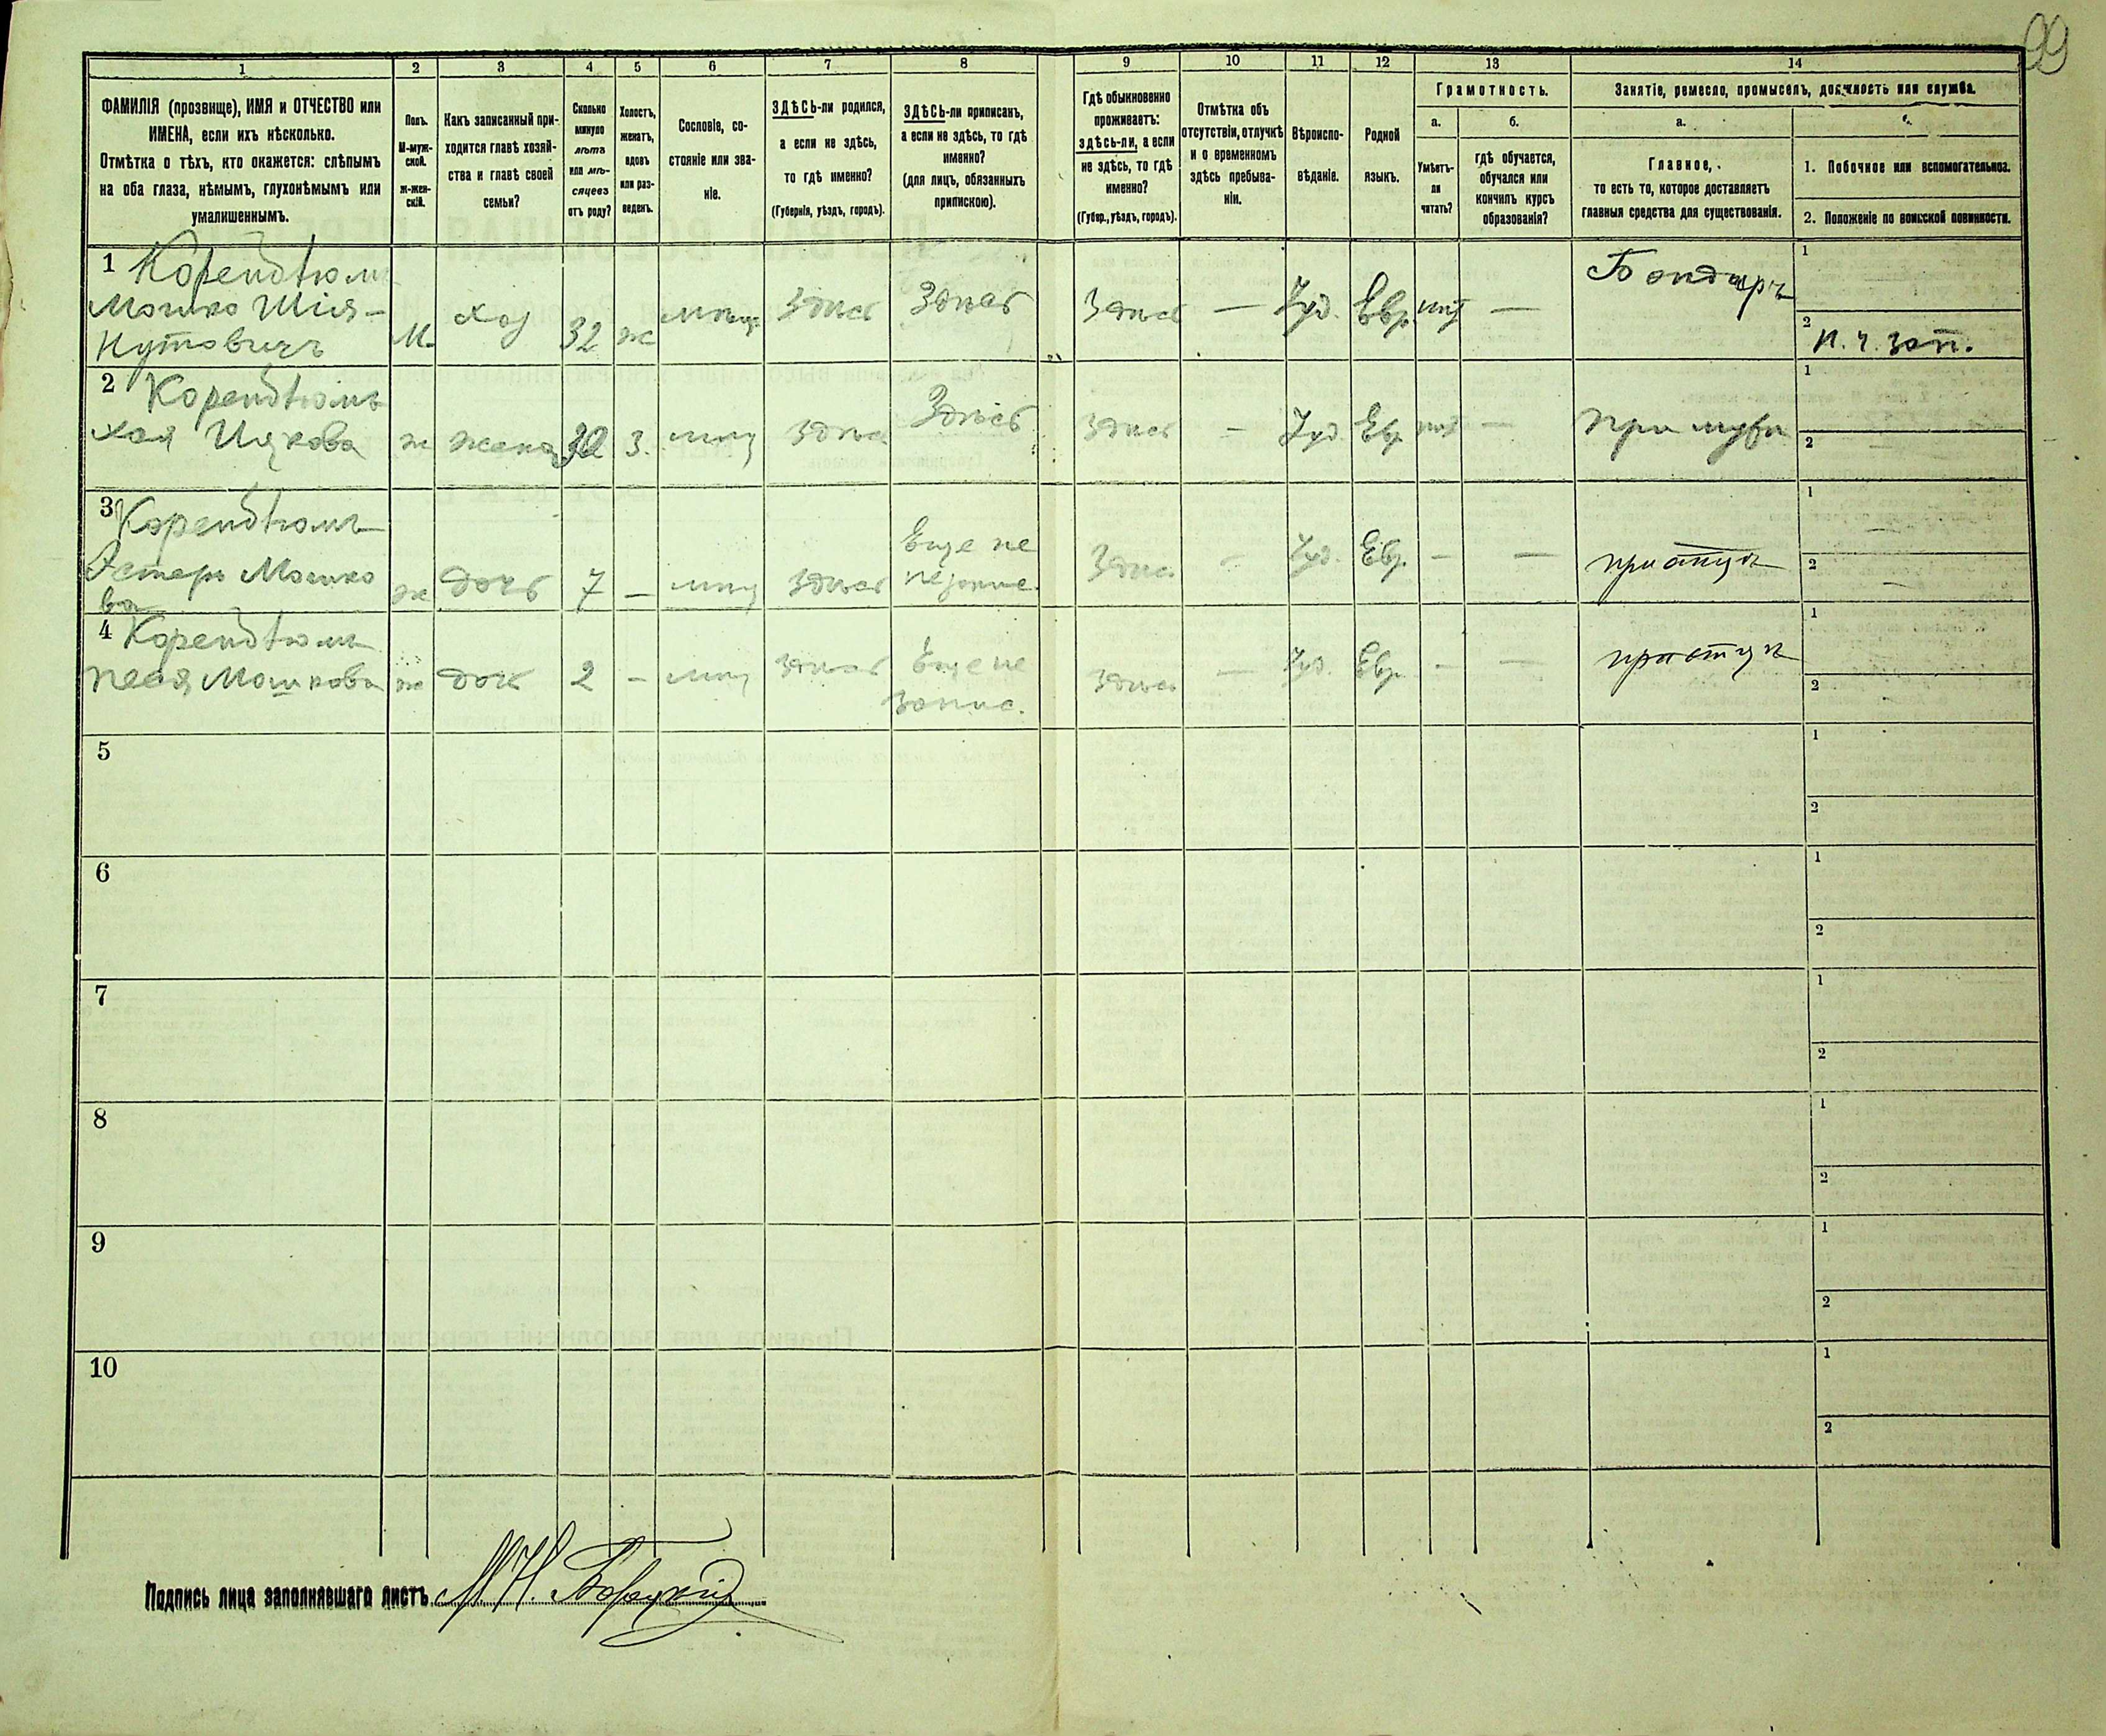 99
1 2 3 4 5 6 7 8 9 10 11 12 13 14
ФАМИЛІЯ (прозвище), ИМЯ и ОТЧЕСТВО или
ИМЕНА, если ихъ нѣсколько.
Отмѣтка о тѣхъ, кто окажется: слѣпымъ
на оба глаза, нѣмымъ, глухонѣмымъ или
умалишеннымъ.
Полъ.
М-муж-
ской.
ж-жен-
скій.
Какъ записанный при-
ходится главѣ хозяй-
ства и главѣ своей
семьи?
Сколько
минуло
лѣтъ
или мѣ-
сяцевъ
отъ роду?
Холостъ,
женатъ,
вдовъ
или раз-
веденъ.
Сословіе, со-
стояніе или зва-
ніе.
ЗДѢСЬ-ли родился,
а если не здѣсь,
то гдѣ именно?
(Губернія, уѣздъ, городъ).
ЗДѢСЬ-ли приписанъ,
а если не здѣсь, то гдѣ
именно?
(для лицъ, обязанныхъ
припискою).
Гдѣ обыкновенно
проживаетъ:
здѣсь-ли, а если
не здѣсь, то гдѣ
именно?
(Губер., уѣздъ, городъ).
Отмѣтка объ
отсутствіи, отлучкѣ
и о временномъ
здѣсь пребыва-
ніи.
Вѣроиспо-
вѣданіе.
Родной
языкъ.
Грамотность.
а.
Умѣетъ-
ли
читать?
б.
гдѣ обучается,
обучался или
кончилъ курсъ
образованія?
Занятіе, ремесло, промыселъ, должность или служба.
а.
Главное,
то есть то, которое доставляетъ
главныя средства для существованія.
1. Побочное или вспомогательное.
2. Положеніе по воинской повинности.
1
Мошко Шлія-
Нутовичъ
М. хоз 32 ж мѣщ. Здѣсь Здѣсь Здѣсь — Іуд. Евр. нѣт — Бондарь
1
2 н. ч. зап.
2
хая Ицкова ж жена 30 з. мѣщ здѣсь Здѣсь здѣсь — Іуд Евр нѣт — при мужѣ
1
2
3
Эстеръ Мошко
ва
ж дочь 7 — мѣщ здѣсь Еще не
Здѣсь — Іуд. Евр. — — при отцѣ
1 —
2 —
4
Песя Мошкова ж дочь 2 — мѣщ здѣсь Еще не
запис.
здѣсь — Іуд. Евр. — — при отцѣ
1
2
5 1
2
6 1
2
7 1
2
8 1
2
9 1
2
10 1
2
Подпись лица заполнявшаго листъ